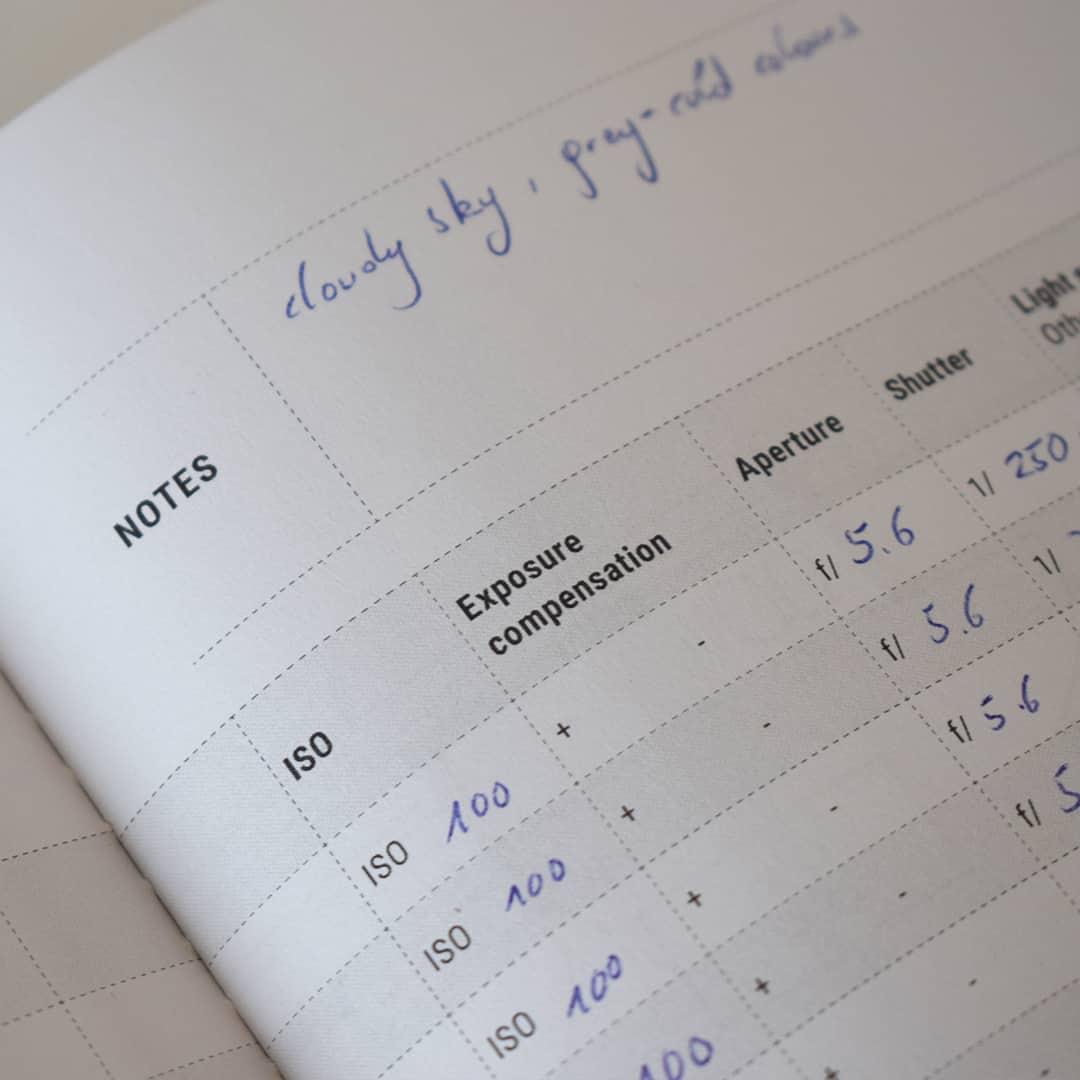 cloudy sky, grey-
NOTES
ISO Exposure compensation Aperture Shutter Light
ISO 100 + - f/ 5.6 1/ 250
ISO 100 + - f/ 5.6 1/
ISO 100 + - f/ 5.6
100 + - f/ 5
+ -